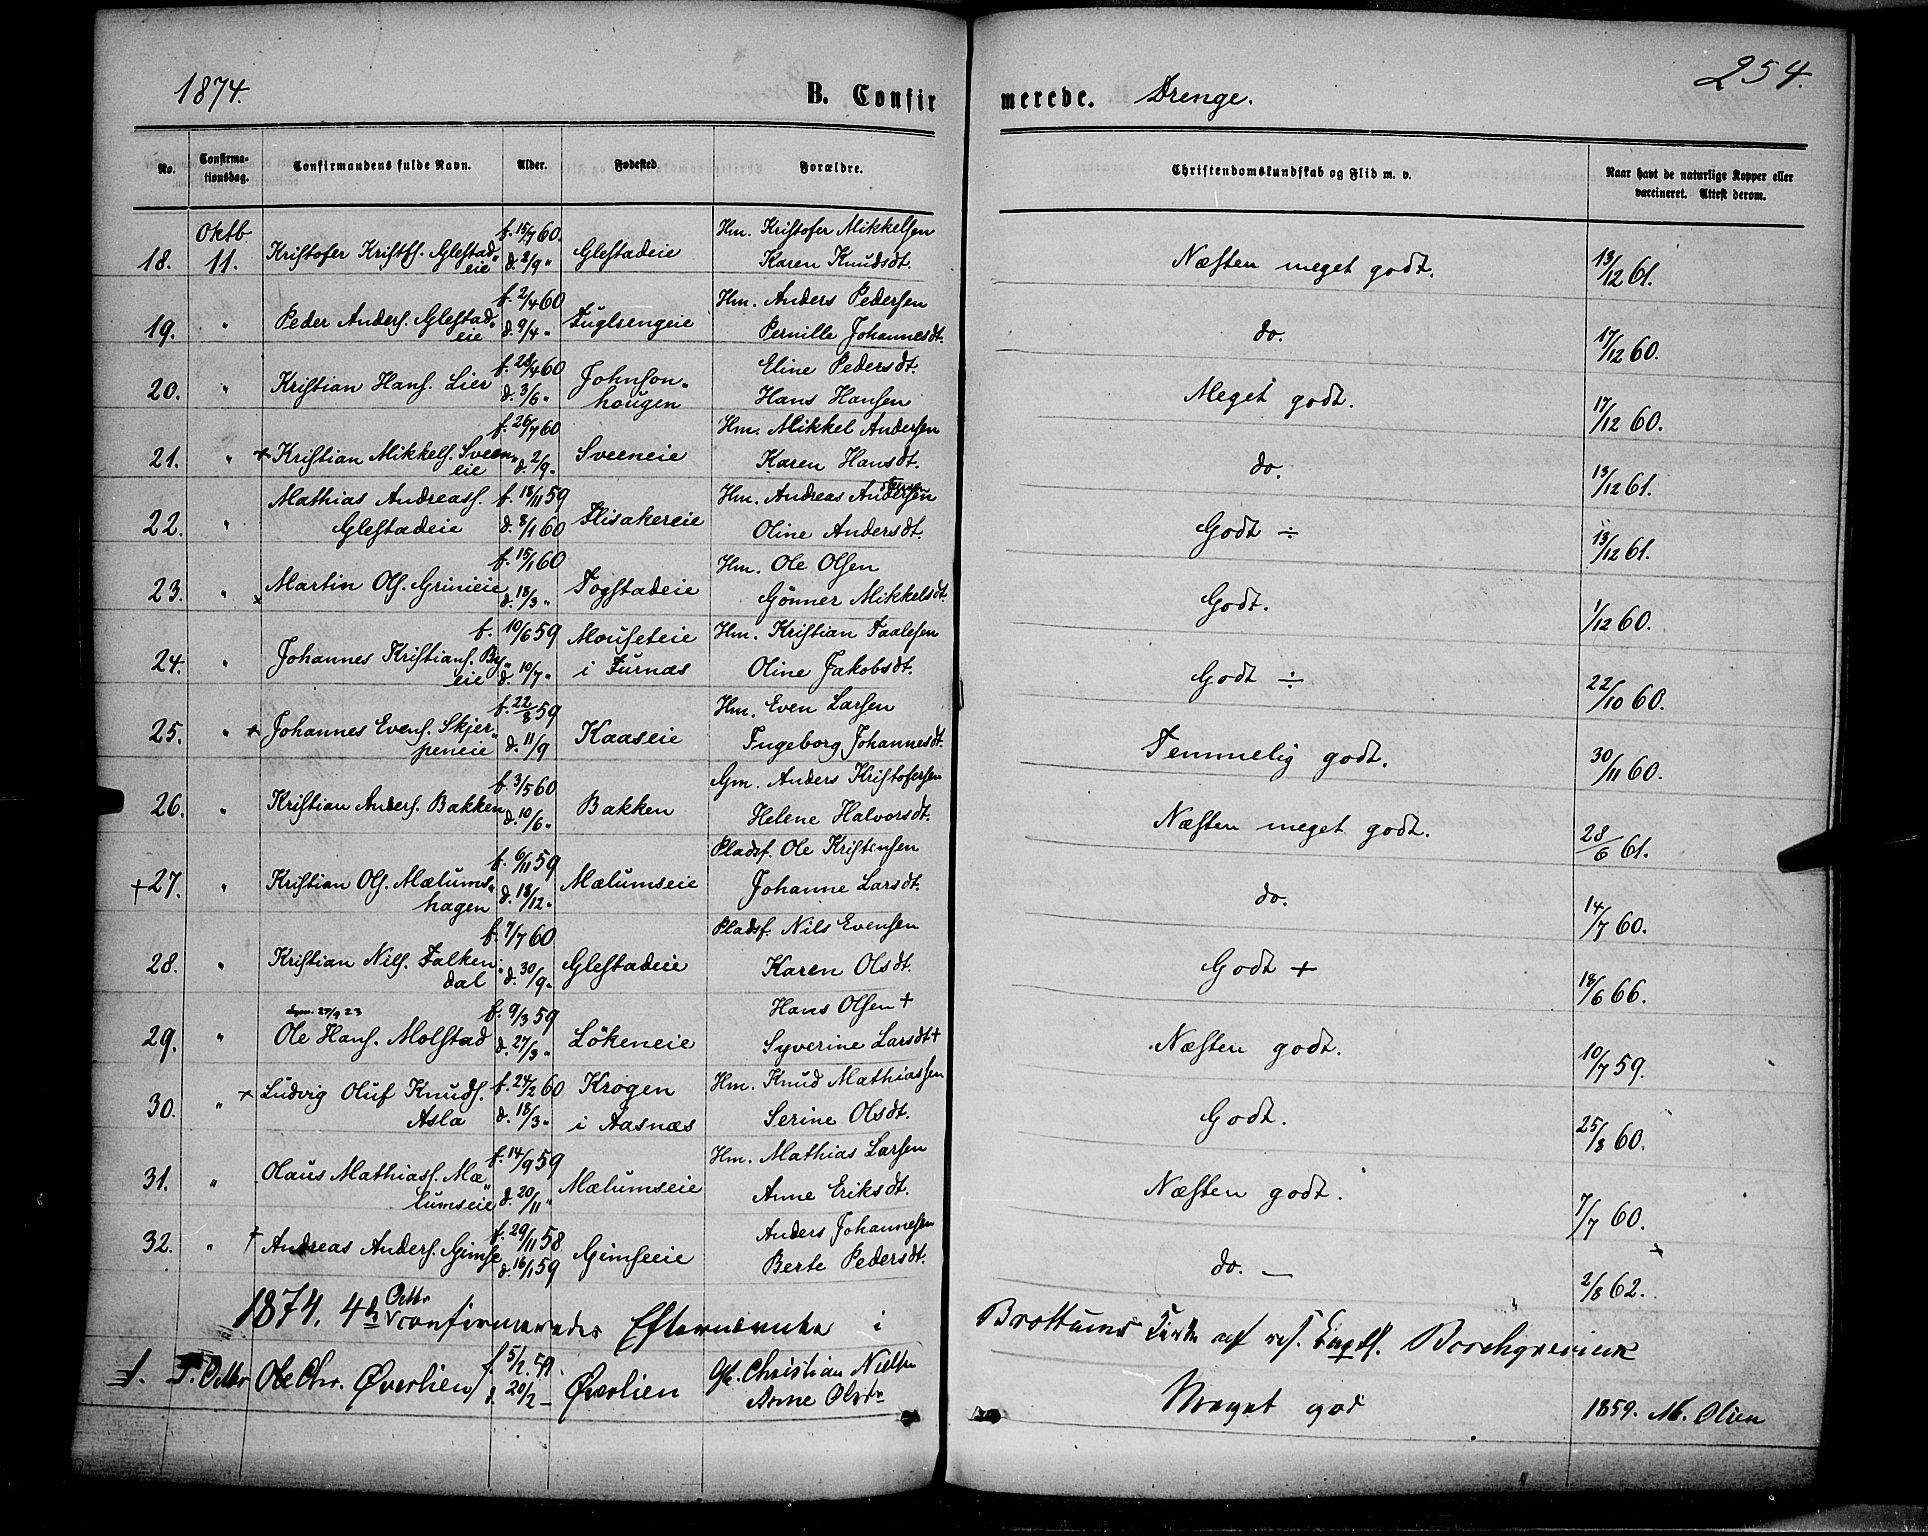 1874.
B. Confirmerede. Drenge.
254.
No. Confirmationsdag. Confirmandens fulde Navn. Alder. Fødested. Forældre. Christendomskundskab og Flid m. v. Naar havt de naturlige Kopper eller vaccineret. Attest derom.
Oktb. f. 15/7 60. Hm. Kristofer Mikkelsen
18. 11. Kristofer Kristfs. Glestad„ d. 2/9 „ Glestadeie Karen Knudsdt. Næsten meget godt. 13/12 61.
eie
f. 2/4 60 Hm. Anders Pedersen
19. „ Peder Anders. Glestad„ d. 9/4 „ Fuglsengeie Pernille Johannesdt. do. 17/12 60.
eie
f. 28/4 60 Eline Pedersdt.
20. „ Kristian Hans. Lier d. 3/6 „ Johnson„ Hans Hansen Meget godt. 17/12 60.
hougen
f. 26/7 60 Hm. Mikkel Andersen
21. „ + Kristian Mikkels. Sveen„ d. 2/9 „ Sveeneie Karen Hansdt. do. 13/12 61.
eie
Mathias Andreass. f. 18/11 59 Hm. Andreas Andersen
22. „ Glestadeie d. 8/1 60 Flisakereie Oline Andersdt. Godt ÷ 13/12 61.
f. 15/1 60 Hm. Ole Olsen
23. „ x Martin Ols. Grinieie d. 18/3 „ Fogstadeie Gönner Mikkelsdt. Godt. 1/12 60.
f. 10/6 59 Mouseteie Hm. Kristian Taalesen
24. „ Johannes Kristians. By„ d. 10/7 „ i Furnæs Oline Jakobsdt. Godt ÷ 22/10 60.
eie
f. 22/8 59 Hm. Even Larsen
25. „ + Johannes Evens. Skjer„ d. 11/9 Kaaseie Ingeborg Johannesdt. Temmelig godt. 30/11 60.
peneie
f. 3/5 60 Gm. Anders Kristofersen
26. „ Kristian Anders. Bakken d. 10/6 „ Bakken Helene Halvorsdt. Næsten meget godt. 28/6 61.
f. 6/11 59 Pladsf. Ole Kristensen
+ 27. „ Kristian Ols. Mælums„ d. 18/12 „ Mælumseie Johanne Larsdt. do. 14/7 60.
hagen
f. 7/7 60 Pladsf. Nils Evensen
28. „ Kristian Nils. Falken„ d. 30/9 „ Glestadeie Karen Olsdt. Godt + 18/6 66.
dal
27/9 23 f. 9/3 59 Hans Olsen +
29. „ Ole Hans. Molstad d. 27/3 „ Lökeneie Syverine Larsdt + Næsten godt. 10/7 59.
+ Ludvig Oluf Knuds. f. 24/2 60 Krogen Hm. Knud Mathiassen
30. „ Asla d. 18/3 „ i Aasnæs Serine Olsdt. Godt. 25/8 60.
f. 14/9 59 Hm. Mathias Larsen
31. „ Olaus Mathiass. Mæ„ d. 20/11 „ Mælumseie Anne Eriksdt. Næsten godt. 7/7 60.
lumseie
f. 29/11 58 Anders Johannesen
32. „ + Andreas Anders. Gimse d. 16/1 59 Gimseeie Berte Pedersdt. do. — 2/8 62.
1874. 4de Octbr confirmeredes Efternævnte i Brottums Kirke af
1. Octbr Ole Chr. Øverlien f. 5/2 59. Øverlien Christian Nielsen Meget god 1859. M. Olsen
d. 20/2 — Anne Olsdr